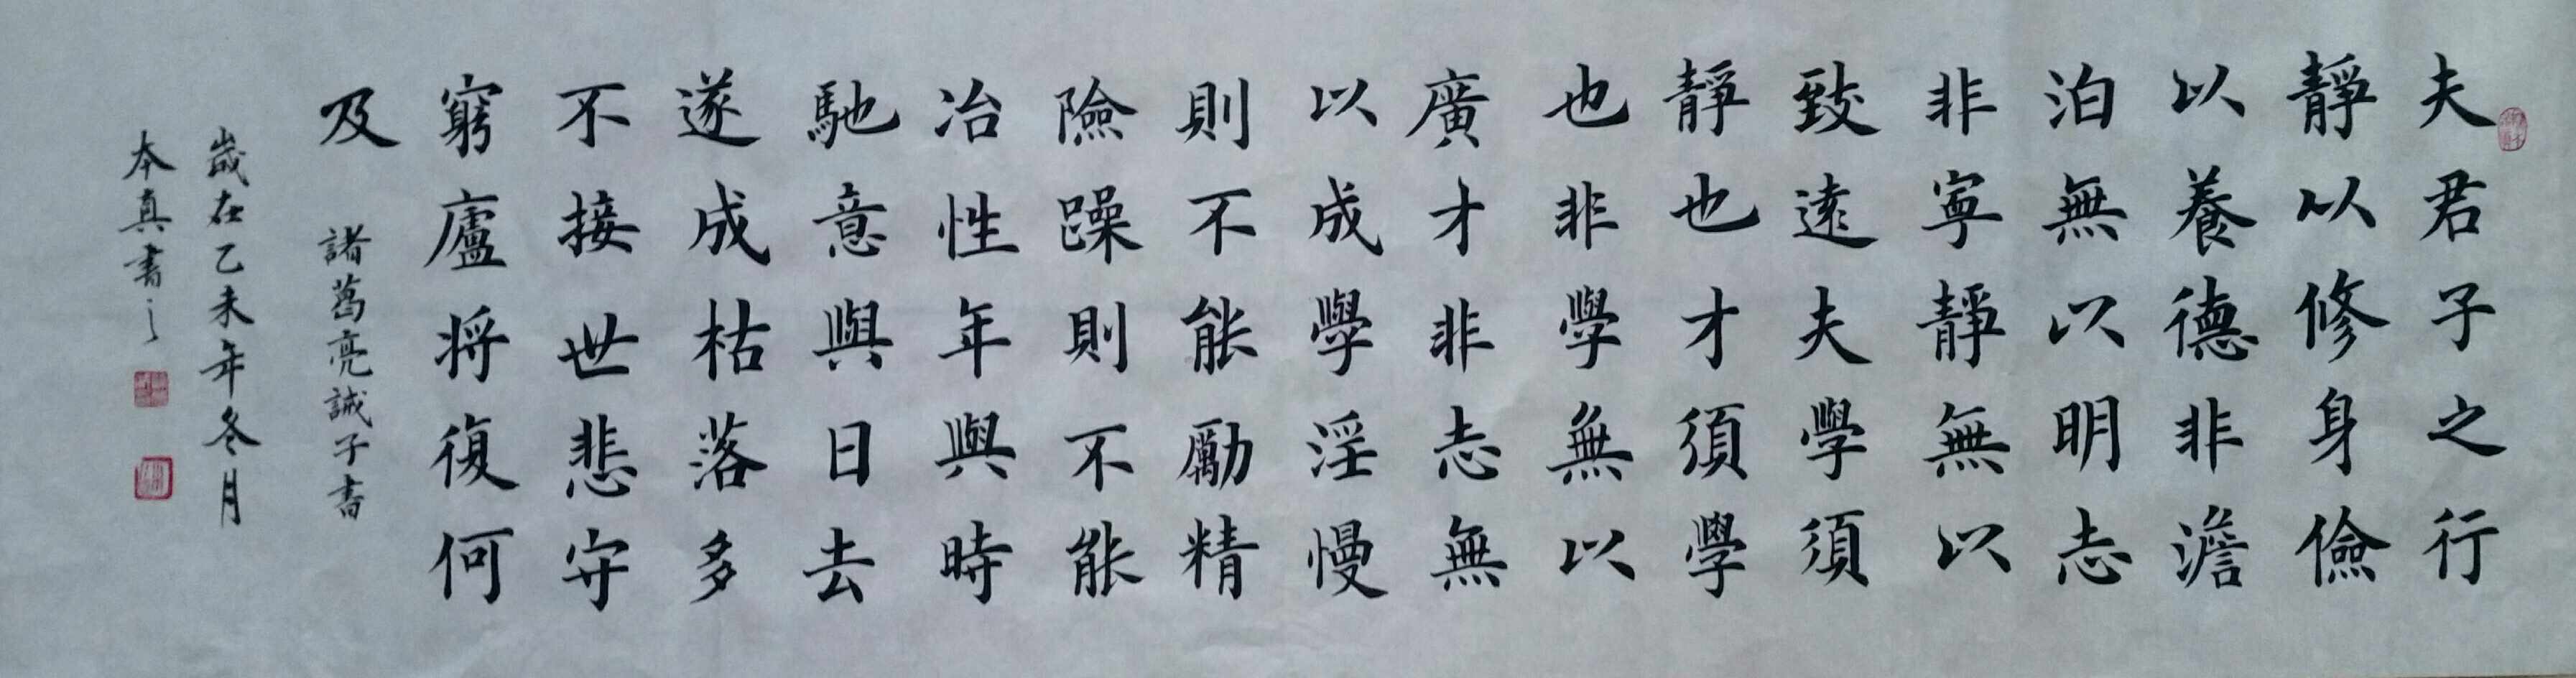 夫君子之行
靜以修身儉
以養德非澹
泊無以明志
非寧靜無以
致遠夫學須
靜也才須學
也非學無以
廣才非志無
以成學淫慢
則不能勵精
險躁則不能
冶性年與時
馳意與日去
遂成枯落多
不接世悲守
窮廬將復何
及 諸葛亮誡子書
歲在乙未年冬月
本真書之